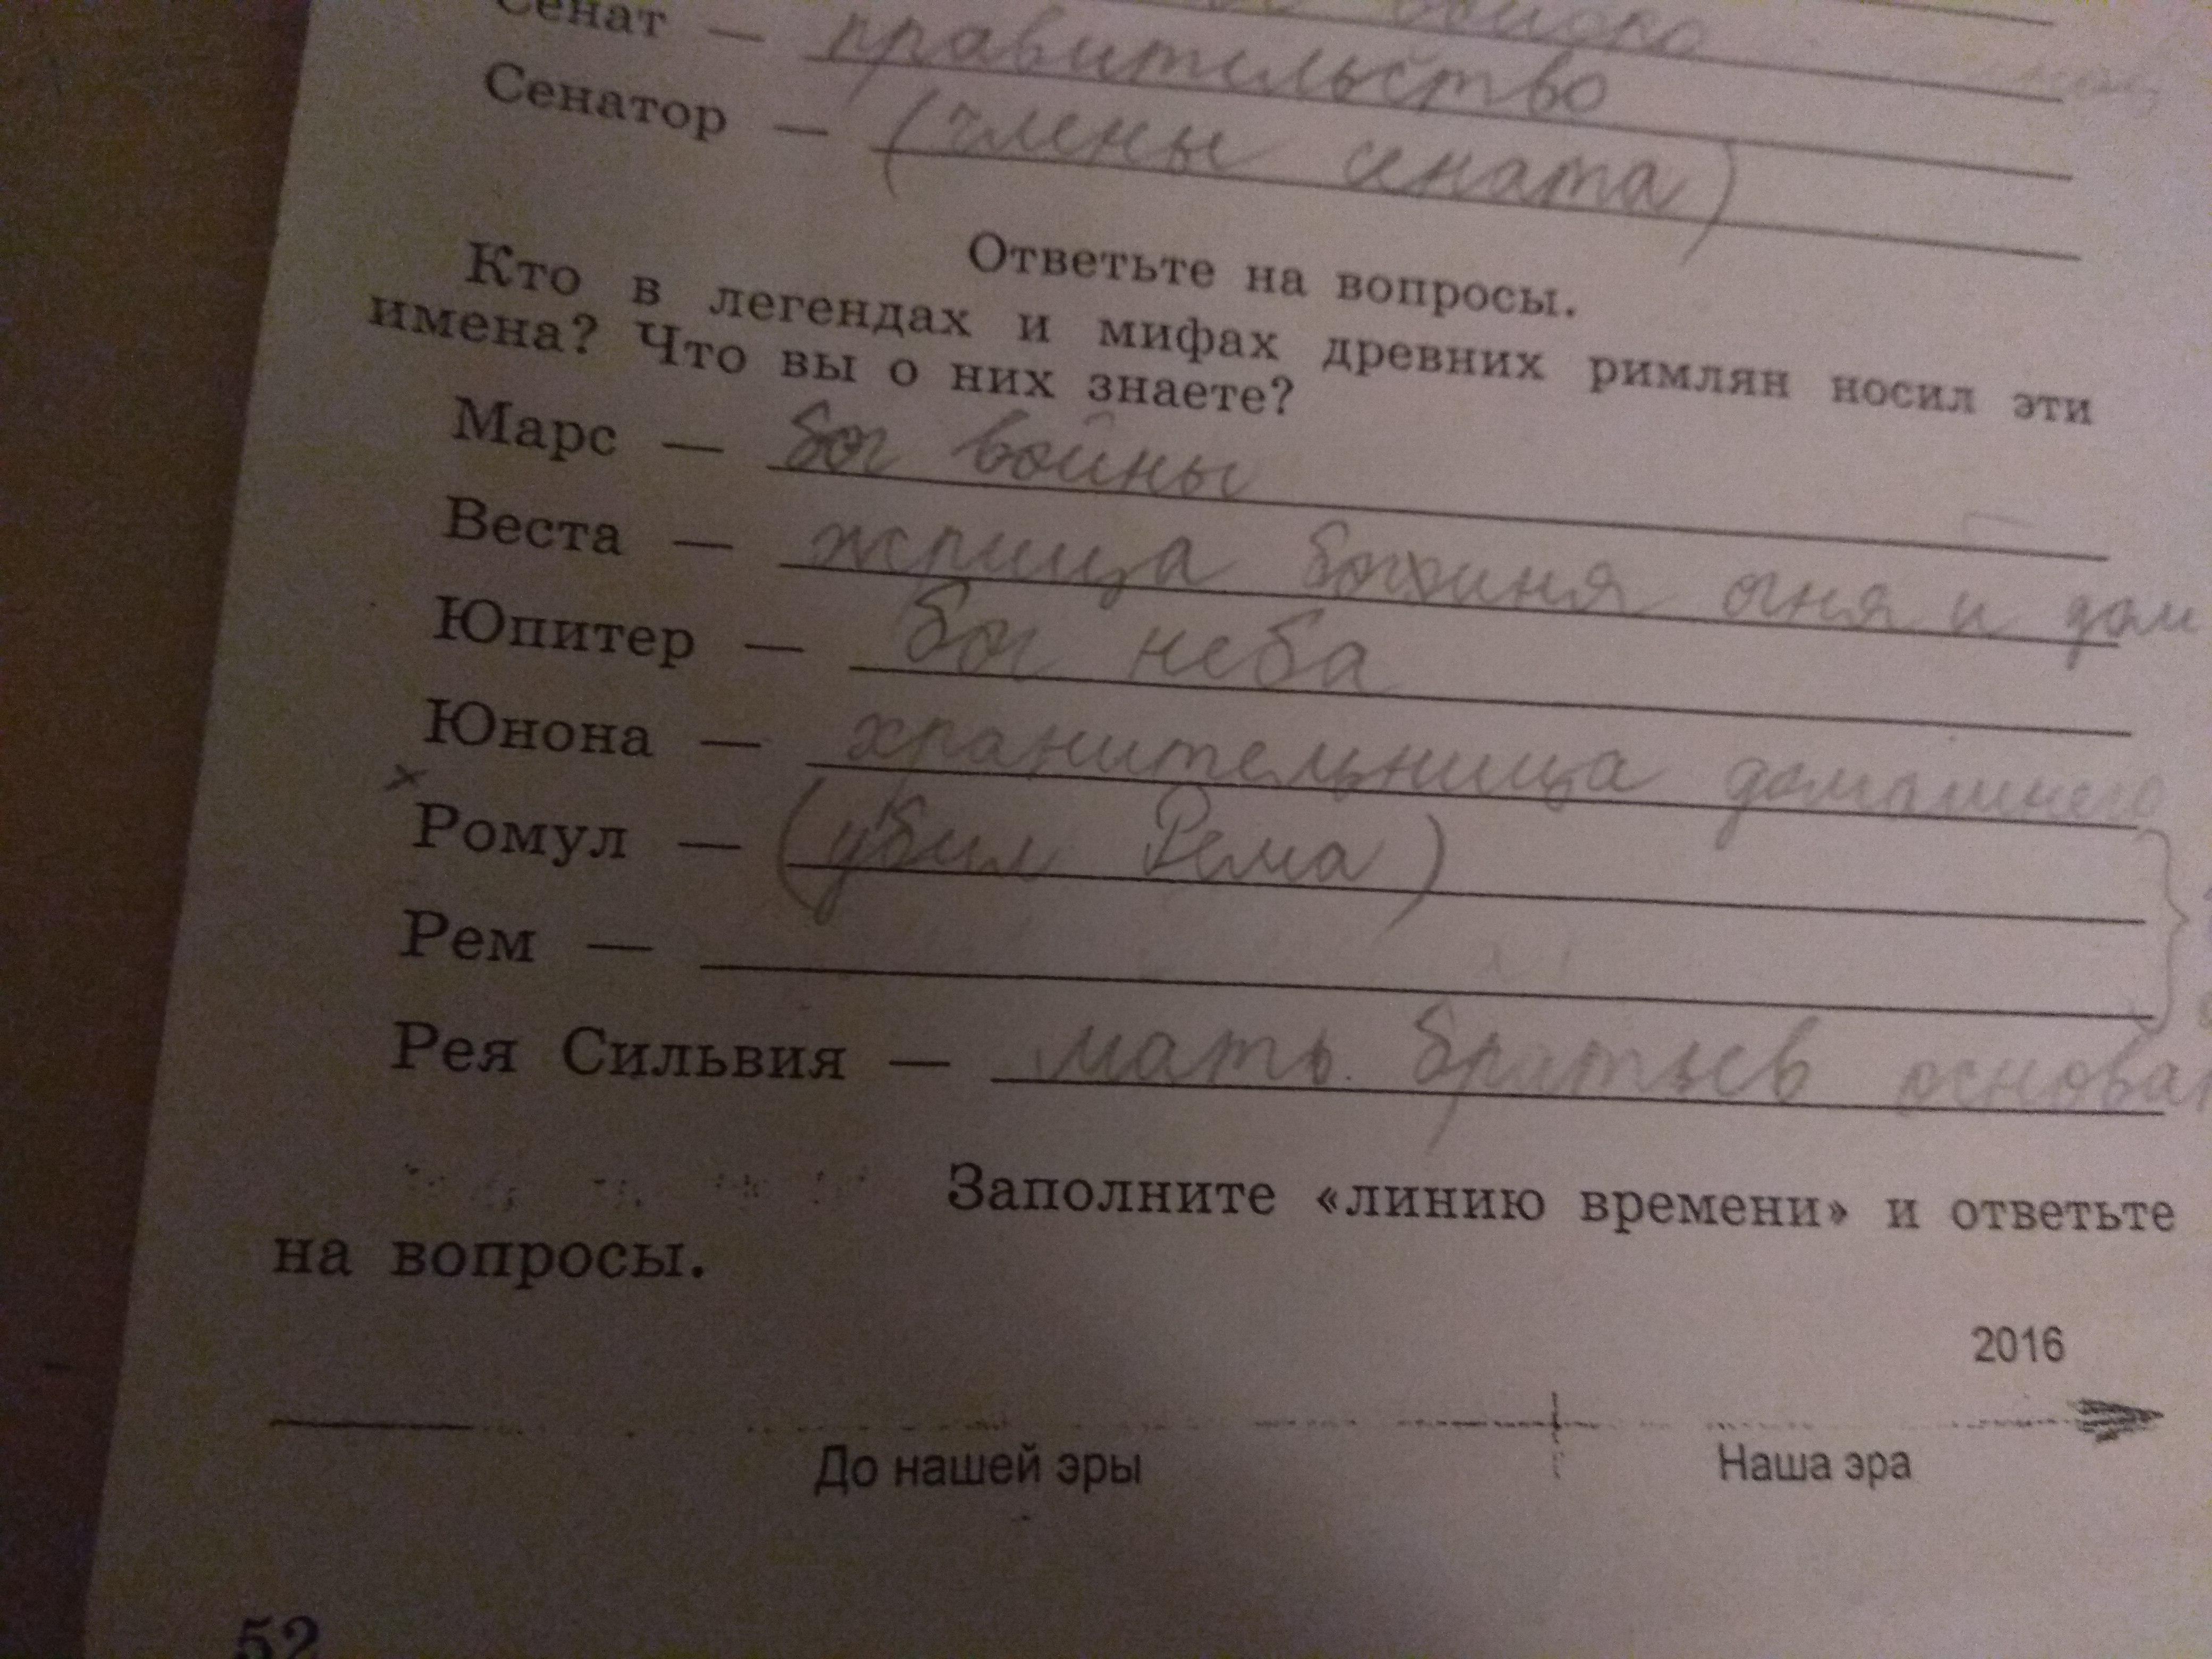 войско
Сенат — правительство
Сенатор — (члены сената)
Ответьте на вопросы.
Кто в легендах и мифах древних римлян носил эти
имена? Что вы о них знаете?
Марс — бог войны
Веста — жрица богиня огня и дом
Юпитер — бог неба
Юнона — хранительница домашнего
х
Ромул — (убил Рема)
Рем —
Рея Сильвия — мать братьев основа
Заполните «линию времени» и ответьте
на вопросы.
2016
До нашей эры Наша эра
52